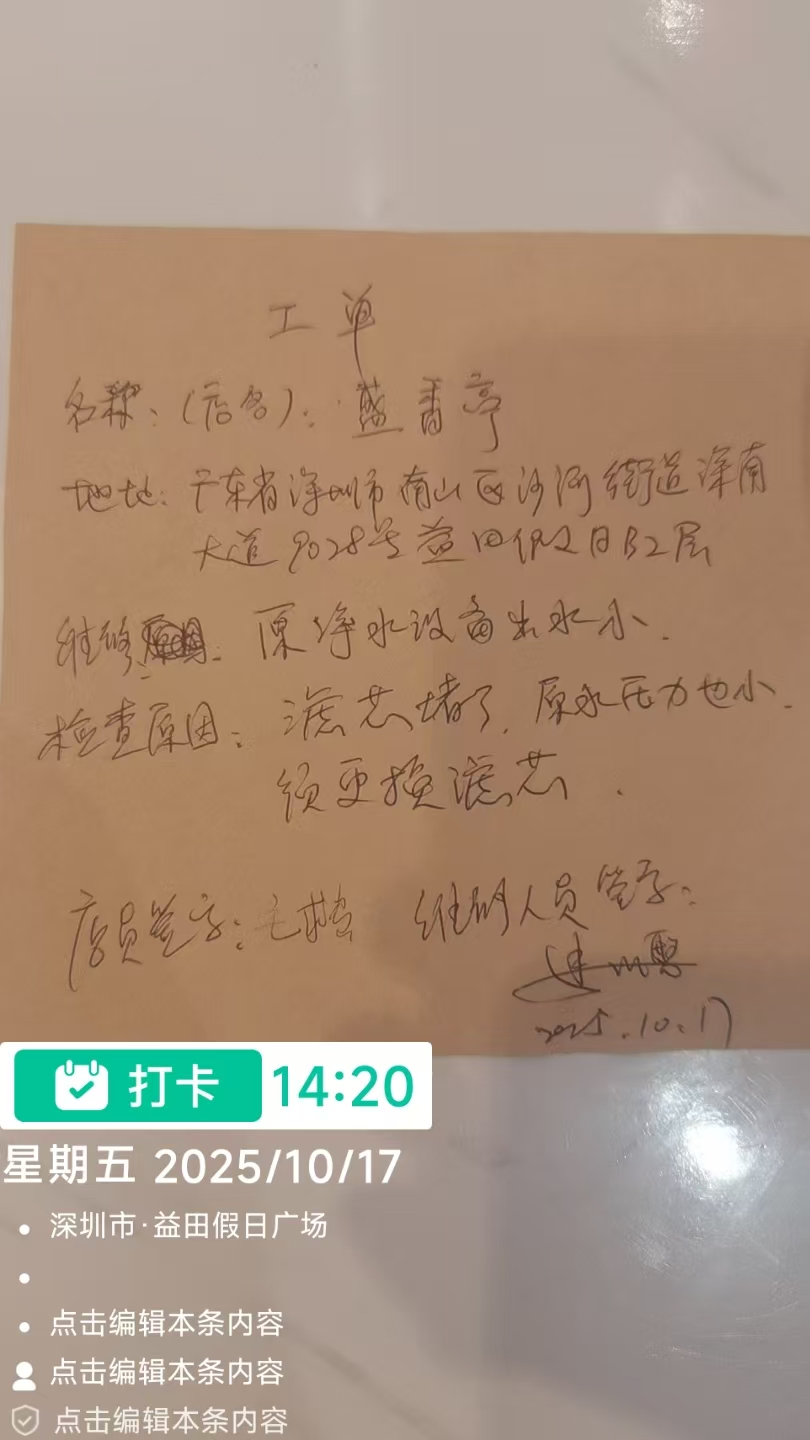 工单
名称:(店名):蓝香亭
地址:广东省深圳市南山区沙河街道深南
大道9028号益田假日B2层
维修原因:原净水设备出水小.
检查原因:滤芯堵了,原水压力也小.
须更换滤芯.
店员签字: 维修人员签字:
2025.10.17
打卡 14:20
星期五 2025/10/17
深圳市·益田假日广场
点击编辑本条内容
点击编辑本条内容
点击编辑本条内容